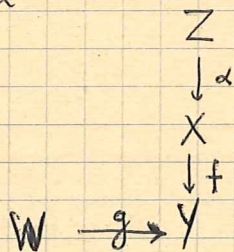 Z
↓ α
X
↓ f
W g→ Y